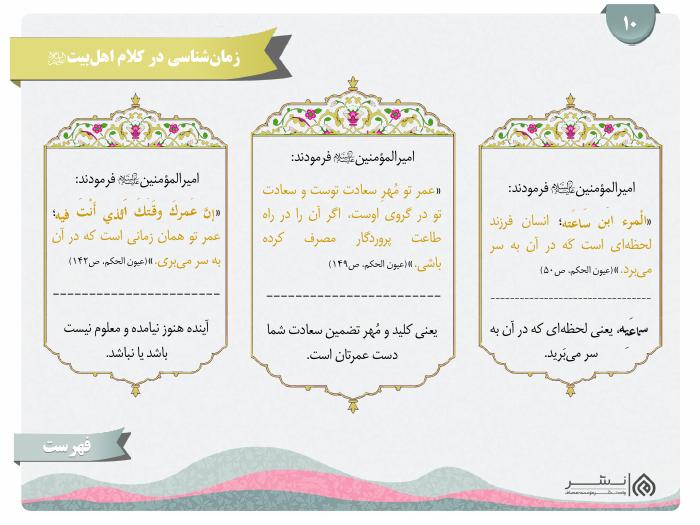 ۱۰
زمان‌شناسی در کلام اهل‌بیت علیهم‌السلام
امیرالمؤمنین علیه‌السلام فرمودند:
«الْمَرء ابْن سَاعَته؛ انسان فرزند
لحظه‌ای است که در آن به سر
می‌برد.» (عیون الحکم، ص۵۰)
ساعَتِه، یعنی لحظه‌ای که در آن به
سر می‌بَرید.
امیرالمؤمنین علیه‌السلام فرمودند:
«عمر تو مُهرِ سعادت توست و سعادت
تو در گروی اوست، اگر آن را در راه
طاعت پروردگار مصرف کرده
باشی.» (عیون الحکم، ص۱۴۹)
یعنی کلید و مُهر تضمین سعادت شما
دست عمرتان است.
امیرالمؤمنین علیه‌السلام فرمودند:
«إنَّ عَمرکَ وقتَکَ الَّذي أنْتَ فیه؛
عمر تو همان زمانی است که در آن
به سر می‌بری.» (عیون الحکم، ص۱۴۲)
آینده هنوز نیامده و معلوم نیست
باشد یا نباشد.
فهرست
نشر